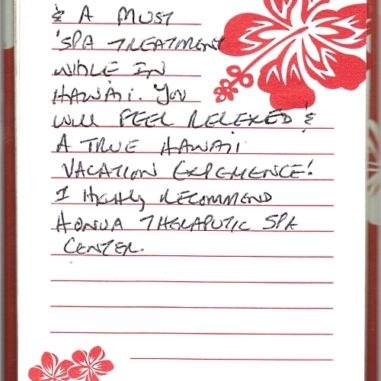 & A MUST
SPA TREATMENT
WHILE IN
HAWAII. YOU
WILL FEEL RELEXED &
A TRUE HAWAII
VACATION EXPERIENCE!
I HIGHLY RECOMMEND
HONUA THERAPUTIC SPA
CENTER.